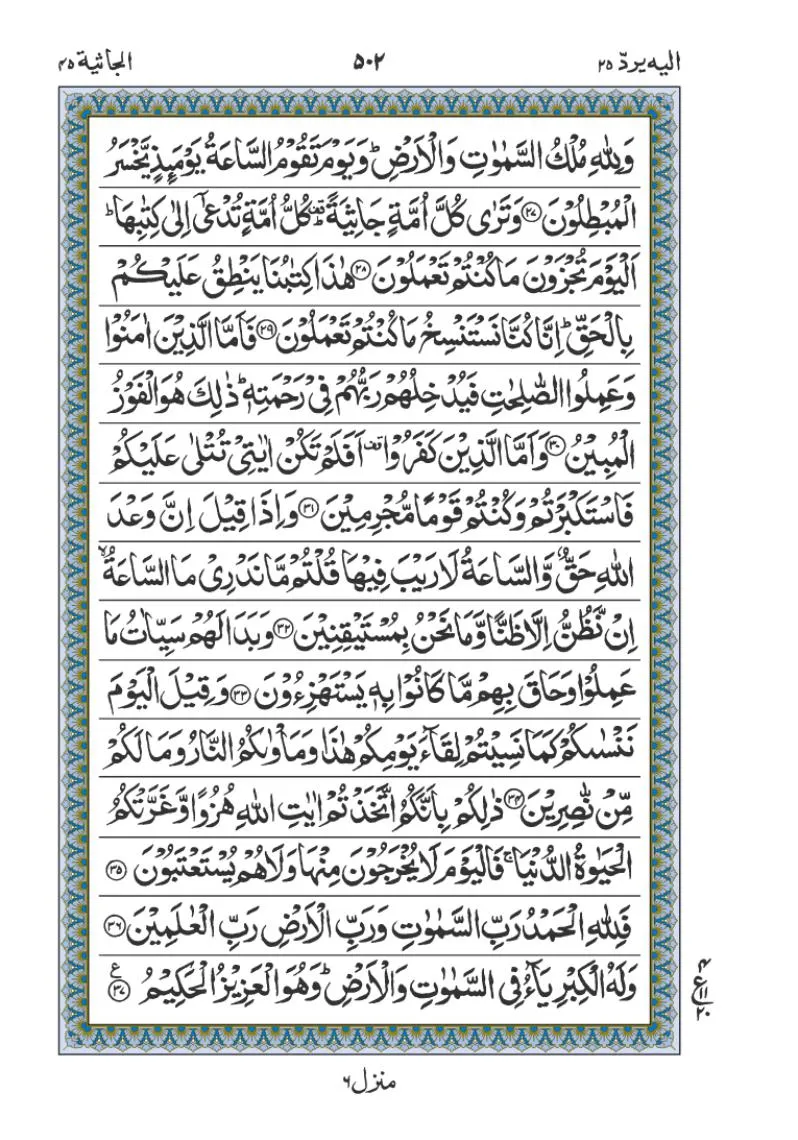 اليه يردّ ٢٥
٥٠٢
الجاثية ٤٥
وَلِلّٰهِ مُلْكُ السَّمٰوٰتِ وَالْاَرْضِ ؕ وَيَوْمَ تَقُوْمُ السَّاعَةُ يَوْمَىِٕذٍ يَّخْسَرُ
الْمُبْطِلُوْنَ ﴿۲۷﴾ وَتَرٰى كُلَّ اُمَّةٍ جَاثِيَةً ؕ قف كُلُّ اُمَّةٍ تُدْعٰۤى اِلٰى كِتٰبِهَا ؕ
اَلْيَوْمَ تُجْزَوْنَ مَا كُنْتُمْ تَعْمَلُوْنَ ﴿۲۸﴾ هٰذَا كِتٰبُنَا يَنْطِقُ عَلَيْكُمْ
بِالْحَقِّ ؕ اِنَّا كُنَّا نَسْتَنْسِخُ مَا كُنْتُمْ تَعْمَلُوْنَ ﴿۲۹﴾ فَاَمَّا الَّذِيْنَ اٰمَنُوْا
وَعَمِلُوا الصّٰلِحٰتِ فَيُدْخِلُهُمْ رَبُّهُمْ فِىْ رَحْمَتِهٖ ؕ ذٰلِكَ هُوَ الْفَوْزُ
الْمُبِيْنُ ﴿۳۰﴾ وَاَمَّا الَّذِيْنَ كَفَرُوْا قف اَفَلَمْ تَكُنْ اٰيٰتِىْ تُتْلٰى عَلَيْكُمْ
فَاسْتَكْبَرْتُمْ وَكُنْتُمْ قَوْمًا مُّجْرِمِيْنَ ﴿۳۱﴾ وَاِذَا قِيْلَ اِنَّ وَعْدَ
اللّٰهِ حَقٌّ وَّالسَّاعَةُ لَا رَيْبَ فِيْهَا قُلْتُمْ مَّا نَدْرِىْ مَا السَّاعَةُ ۙ
اِنْ نَّظُنُّ اِلَّا ظَنًّا وَّمَا نَحْنُ بِمُسْتَيْقِنِيْنَ ﴿۳۲﴾ وَبَدَا لَهُمْ سَيِّاٰتُ مَا
عَمِلُوْا وَحَاقَ بِهِمْ مَّا كَانُوْا بِهٖ يَسْتَهْزِءُوْنَ ﴿۳۳﴾ وَقِيْلَ الْيَوْمَ
نَنْسٰىكُمْ كَمَا نَسِيْتُمْ لِقَآءَ يَوْمِكُمْ هٰذَا وَمَاْوٰىكُمُ النَّارُ وَمَا لَكُمْ
مِّنْ نّٰصِرِيْنَ ﴿۳۴﴾ ذٰلِكُمْ بِاَنَّكُمُ اتَّخَذْتُمْ اٰيٰتِ اللّٰهِ هُزُوًا وَّغَرَّتْكُمُ
الْحَيٰوةُ الدُّنْيَا ۚ فَالْيَوْمَ لَا يُخْرَجُوْنَ مِنْهَا وَلَا هُمْ يُسْتَعْتَبُوْنَ ﴿۳۵﴾
فَلِلّٰهِ الْحَمْدُ رَبِّ السَّمٰوٰتِ وَرَبِّ الْاَرْضِ رَبِّ الْعٰلَمِيْنَ ﴿۳۶﴾
وَلَهُ الْكِبْرِيَآءُ فِى السَّمٰوٰتِ وَالْاَرْضِ ؕ وَهُوَ الْعَزِيْزُ الْحَكِيْمُ ﴿۳۷﴾ ع
٤
ع
١١
٢٠
منزل ٦